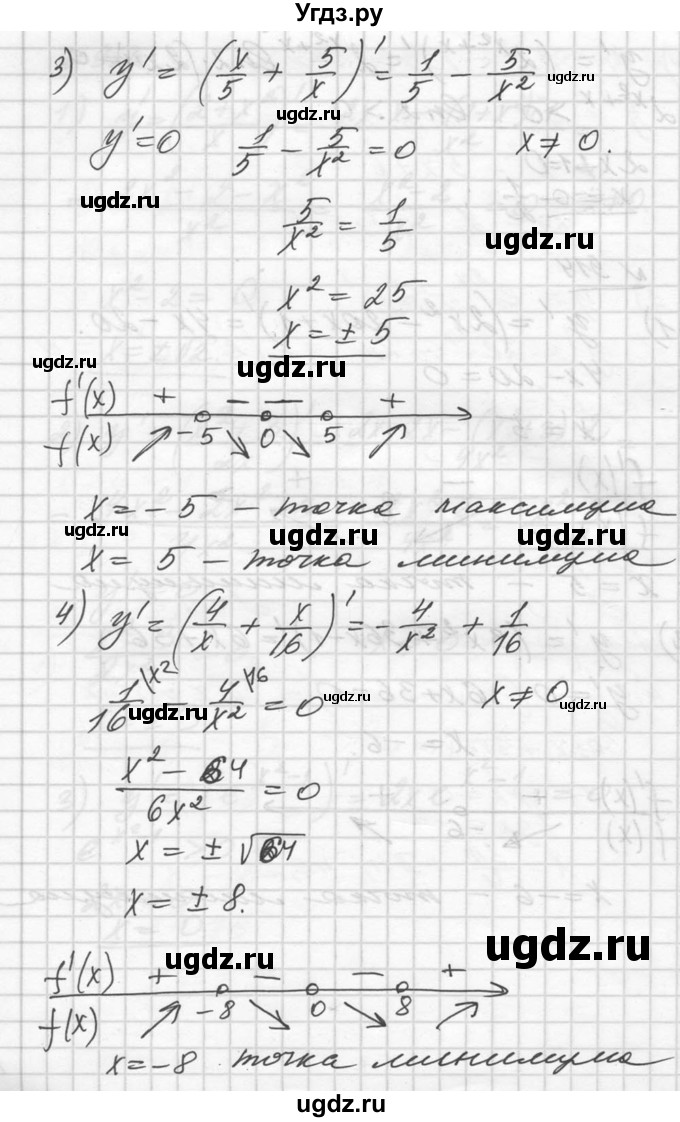 Угдз.ру
3) y' = (x/5 + 5/x)' = 1/5 − 5/x²
ugdz.ru
ugdz.ru
y' = 0 1/5 − 5/x² = 0 x ≠ 0.
ugdz.ru
5/x² = 1/5
ugdz.ru
x² = 25
x = ± 5
ugdz.ru
ugdz.ru
f'(x) + − − +
f(x) ↗ −5 ↘ 0 ↘ 5 ↗
x = −5 − точка максимума
ugdz.ru
ugdz.ru
ugdz.ru
x = 5 − точка минимума
4) y' = (4/x + x/16)' = −4/x² + 1/16
1/16 \x² − 4/x² \16 = 0 x ≠ 0
ugdz.ru
ugdz.ru
ugdz.ru
x² − 64 / 6x² = 0
x = ± √64
x = ± 8.
ugdz.ru
ugdz.ru
f'(x) + − − +
f(x) ↗ −8 ↘ 0 ↘ 8 ↗
x = −8 точка минимума
ugdz.ru